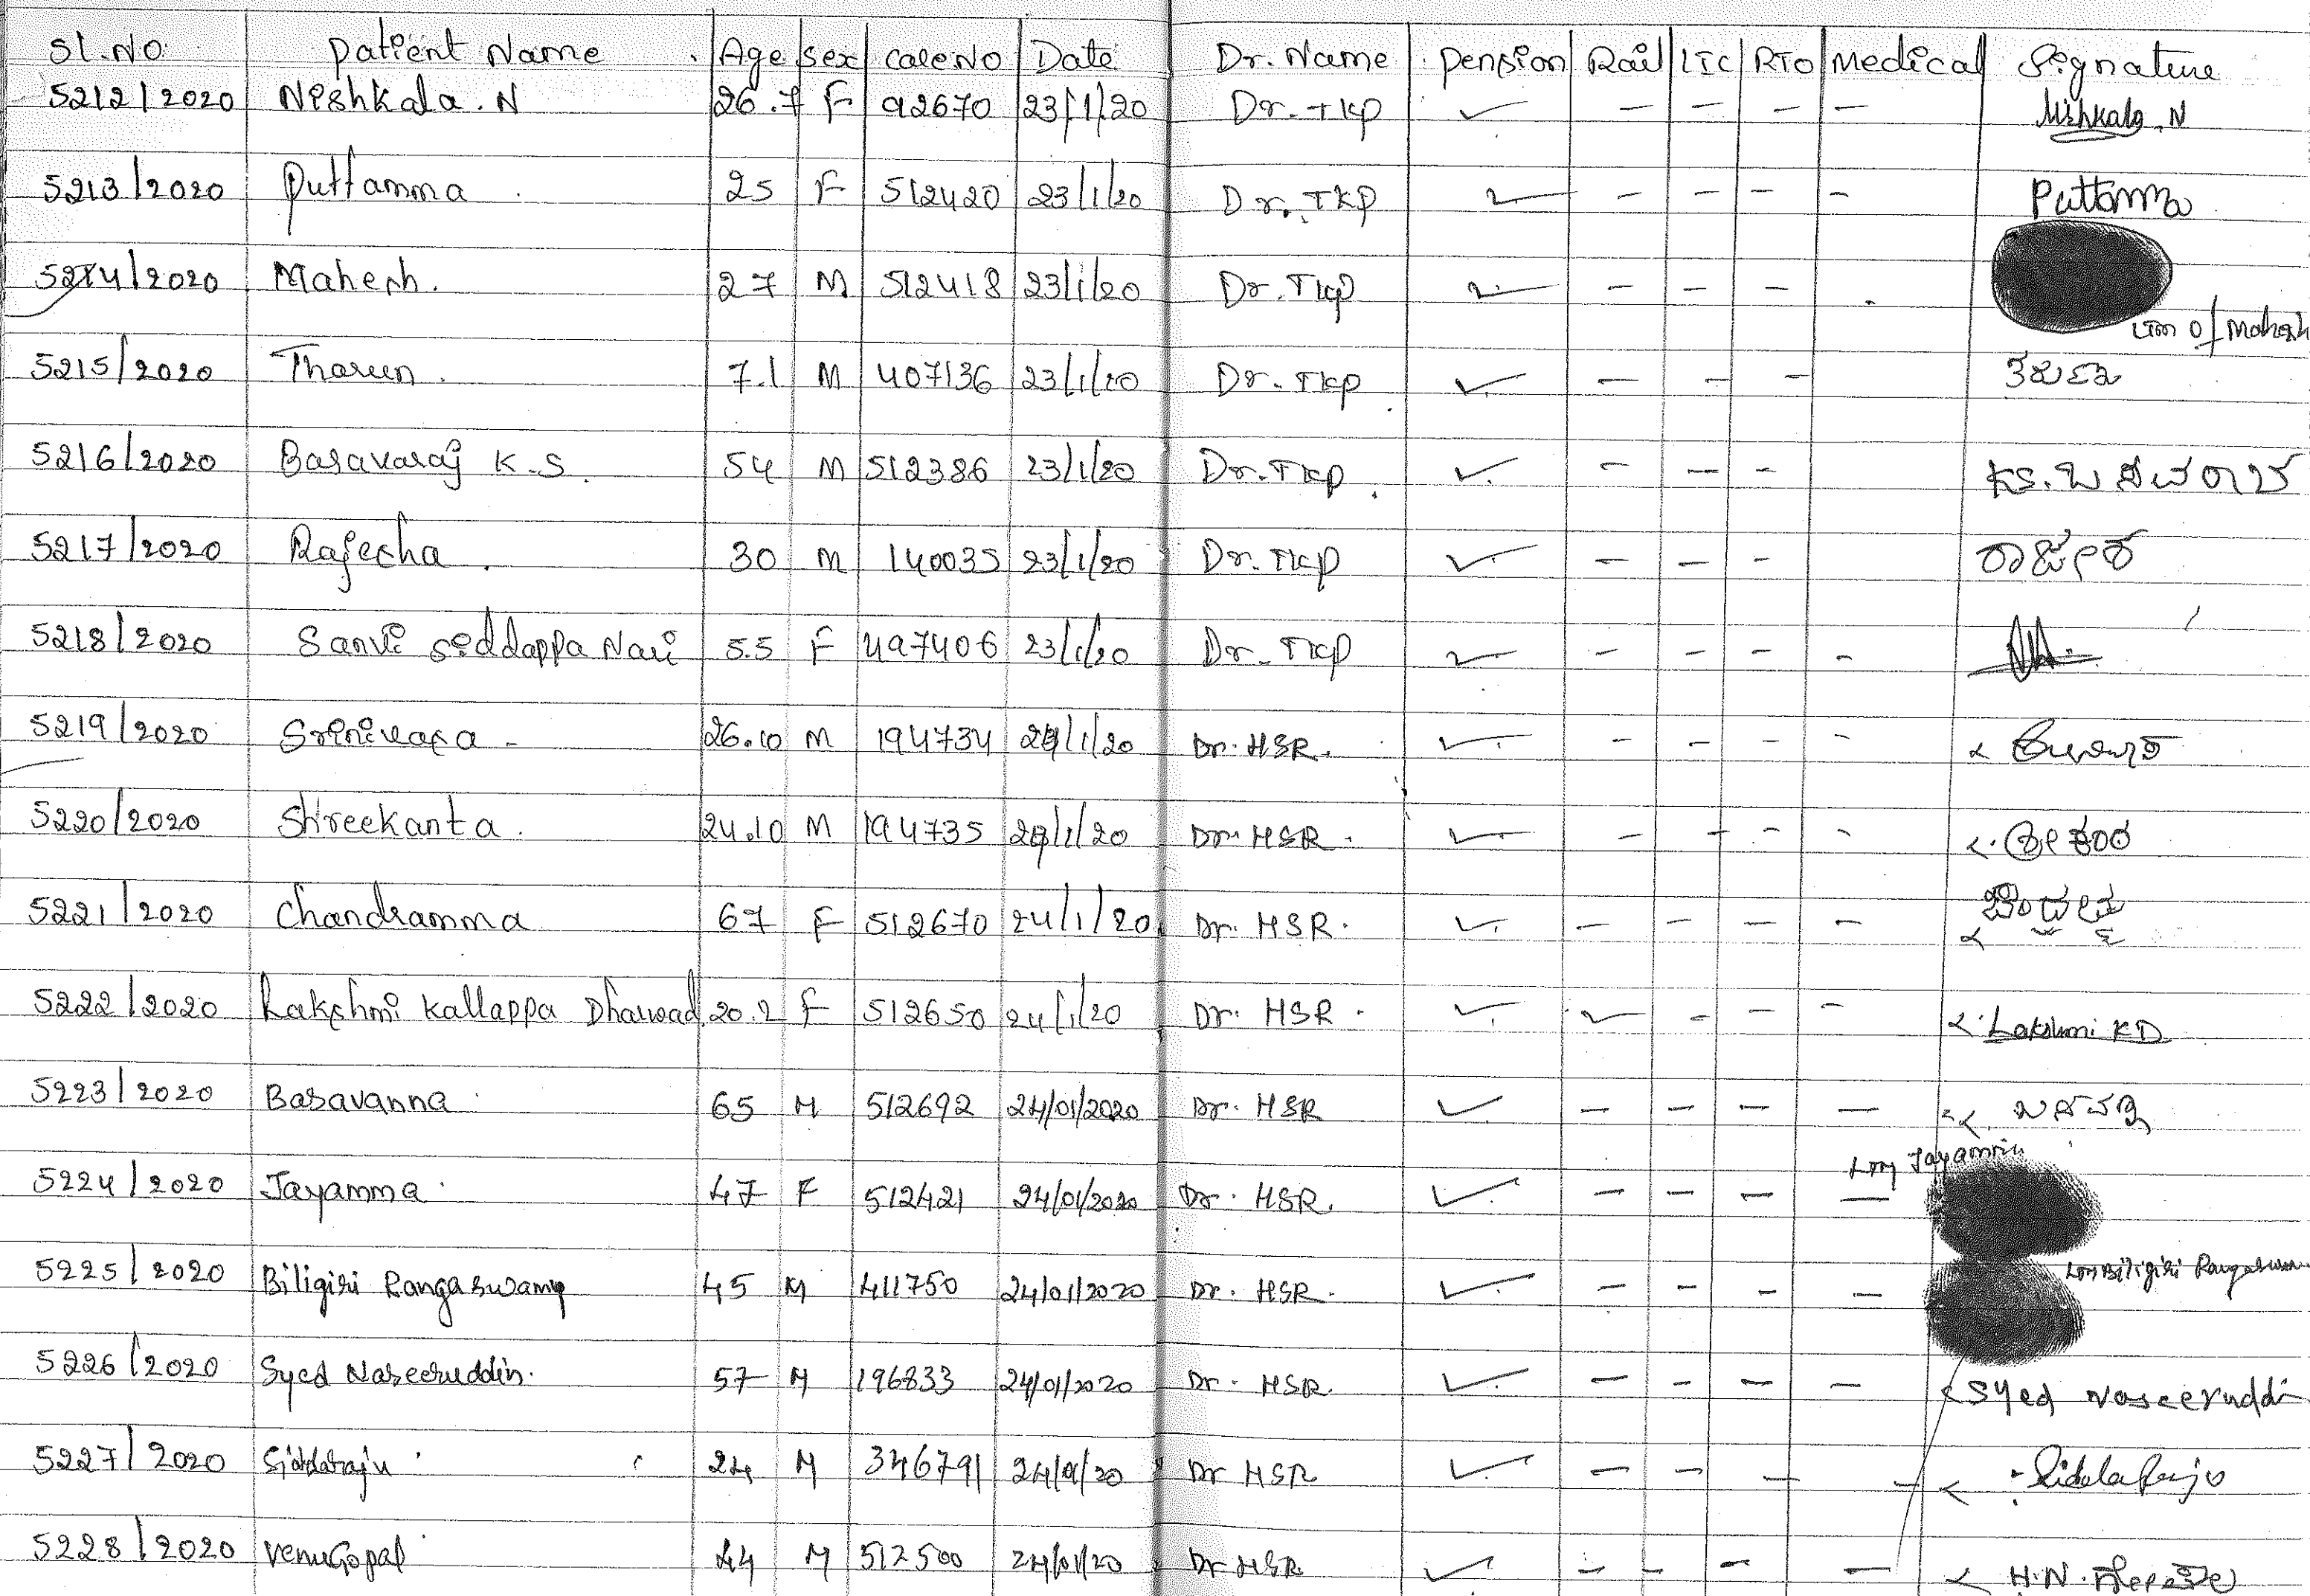 Sl.No. Patient Name Age Sex CaseNo Date Dr. Name Pension Rail LIC RTO Medical Signature
5212/2020 Nishkala. N 26.7 F 92670 23/1/20 Dr. TKP ✓ – – – – Nishkala. N
5213/2020 Puttamma 25 F 512420 23/1/20 Dr. TKP ✓ – – – – Puttamma
5214/2020 Mahesh. 27 M 512418 23/1/20 Dr. TKP ✓ – – –
LTM of Mahesh
5215/2020 Tharun. 7.1 M 407136 23/1/20 Dr. TKP ✓ – – –
5216/2020 Basavaraj K.S. 54 M 512386 23/1/20 Dr. TKP ✓ – – – KS. ಬಸವರಾಜ
5217/2020 Rajesha. 30 M 140035 23/1/20 Dr. TKP ✓ – – – ರಾಜೇಶ
5218/2020 Sanvi Siddappa 5.5 F 497406 23/1/20 Dr. TKP ✓ – – – –
5219/2020 Srinivasa 26.10 M 194734 24/1/20 Dr. HSR. ✓ – – – –
5220/2020 Shreekanta. 24.10 M 194735 24/1/20 Dr. HSR. ✓ – – – – ಶ್ರೀಕಂಠ
5221/2020 Chandramma 67 F 512670 24/1/20 Dr. HSR. ✓ – – – –
5222/2020 Lakshmi Kallappa Dharwad 20.2 F 512650 24/1/20 Dr. HSR. ✓ ✓ – – – Lakshmi KD
5223/2020 Basavanna 65 M 512692 24/01/2020 Dr. HSR ✓ – – – – ಬಸವಣ್ಣ
LTM Jayamma
5224/2020 Jayamma 47 F 512421 24/01/2020 Dr. HSR. ✓ – – – –
5225/2020 Biligiri Rangaswamy 45 M 411750 24/01/2020 Dr. HSR. ✓ – – – – LTM Biligiri
5226/2020 Syed Naseeruddin. 57 M 196833 24/01/2020 Dr. HSR. ✓ – – – – Syed Naseeruddi
5227/2020 Siddaraju 24 M 346791 24/01/20 Dr HSR ✓ – – – – Siddaraju
5228/2020 Venugopal 44 M 512500 24/01/20 Dr HSR ✓ – – – – H.N.